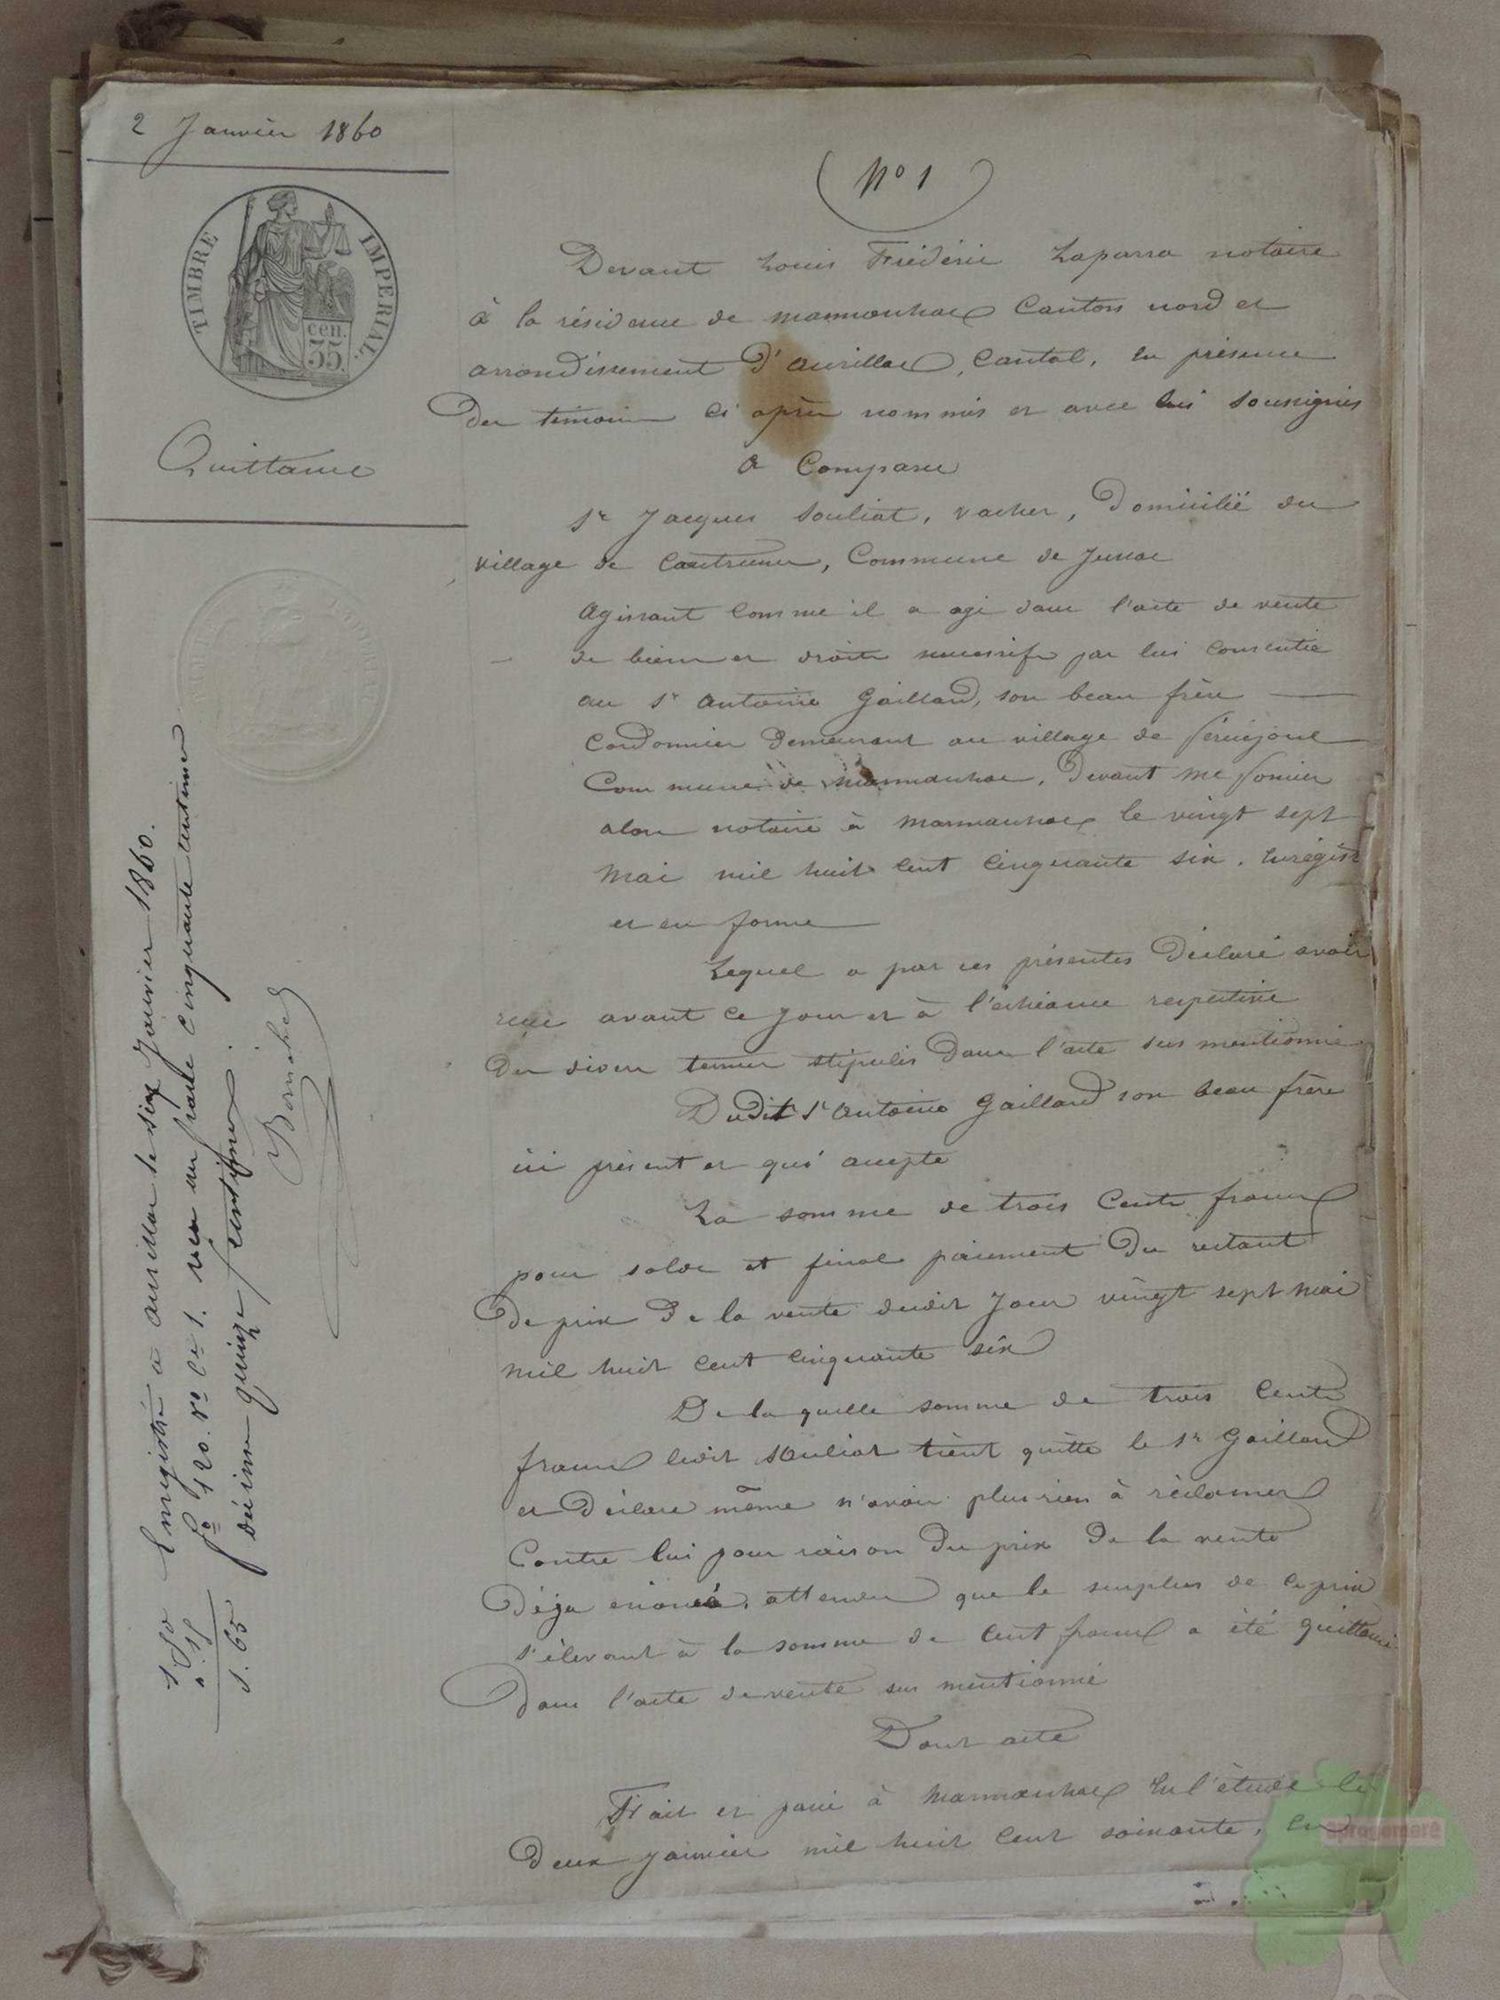 2 Janvier 1860
(N° 1)
TIMBRE IMPERIAL.
cen.
35.
Quittance
Devant Louis Frédéric Laparra notaire
à la résidence de Marmanhac Canton nord et
arrondissement d'aurillac, Cantal, en présence
des témoins ci après nommés et avec lui soussignés
a Comparu
Sr Jacques Souliat, vacher, Domicilié du
village de , Commune de Jussac
agissant comme il a agi dans l'acte de vente
de biens et droits successifs par lui consentie
au Sr Antoine Gaillard, son beau frère
Cordonnier demeurant au village de
Commune de Marmanhac, devant Me
alors notaire à Marmanhac le vingt sept
Mai mil huit cent cinquante six, enregist
et en forme
Lequel a par ces présentes Déclaré avoir
reçu avant ce jour et à l'échéance respective
des divers termes stipulés dans l'acte sus mentionné
Dudit Sr Antoine Gaillard son beau frère
ici présent et qui accepte
La somme de trois Cents francs
pour solde et final paiement du restant
de prix de la vente dudit jour vingt sept mai
mil huit cent cinquante six
De la quelle somme de trois Cents
francs ledit Souliat tient quitte le Sr Gaillard
et Déclare même n'avoir plus rien à réclamer
Contre lui pour raison du prix de la vente
Déja énoncé, attendu que le surplus de ce prix
s'élevant à la somme de cent francs a été quittancé
dans l'acte de vente sus mentionné
Dont acte
Fait et passé à Marmanhac En l'étude le
deux janvier mil huit cent soixante, en
Enregistré à aurillac le six Janvier 1860.
fo 120. Vo Ce 1. reçu un franc cinquante centimes
décime quinze centimes.
1.50
0.15
1.65